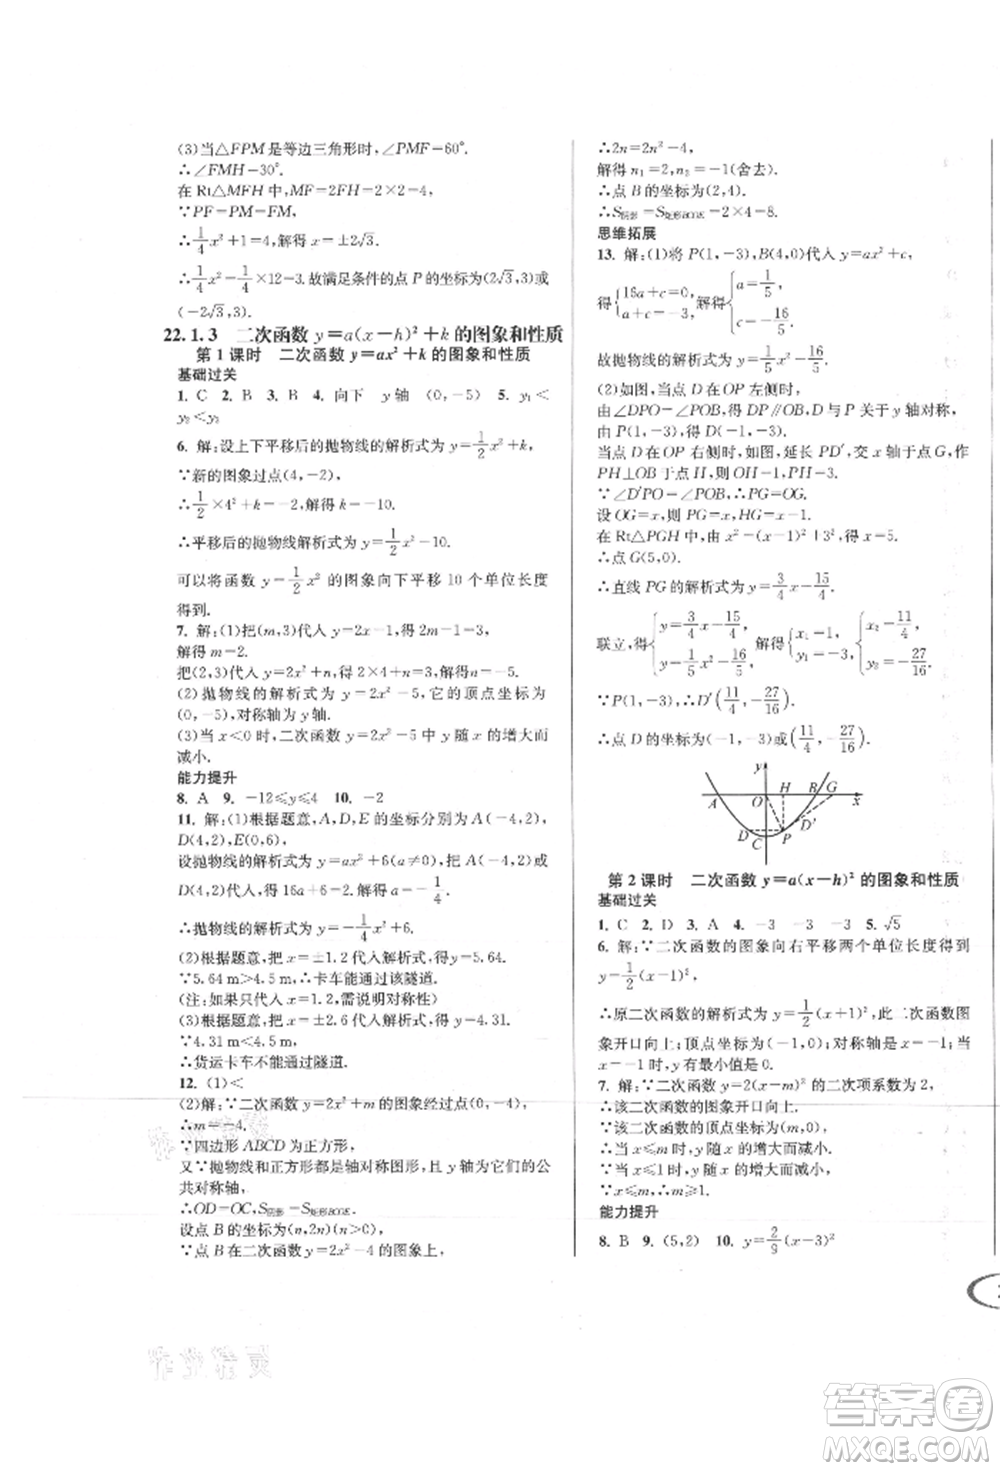 (3)当△FPM是等边三角形时,∠PMF=60°.
∴∠FMH=30°.
在 Rt△MFH 中,MF=2FH=2×2=4.
∵PF=PM=FM,
∴1/4x²+1=4,解得 x=±2√3.
∴1/4x²=1/4×12=3.故满足条件的点 P 的坐标为(2√3,3)或
(-2√3,3).
22.1.3 二次函数 y=a(x-h)²+k 的图象和性质
第 1 课时 二次函数 y=ax²+k 的图象和性质
基础过关
1. C 2. B 3. B 4. 向下 y 轴 (0,-5) 5. y₁<
y₃<y₂
6. 解:设上下平移后的抛物线的解析式为 y=1/2x²+k,
∵新的图象过点(4,-2),
∴1/2×4²+k=-2,解得 k=-10.
∴平移后的抛物线解析式为 y=1/2x²-10.
可以将函数 y=1/2x² 的图象向下平移 10 个单位长度
得到.
7. 解:(1)把(m,3)代入 y=2x-1,得 2m-1=3,
解得 m=2.
把(2,3)代入 y=2x²+n,得 2×4+n=3,解得 n=-5.
(2)抛物线的解析式为 y=2x²-5,它的顶点坐标为
(0,-5),对称轴为 y 轴.
(3)当 x<0 时,二次函数 y=2x²-5 中 y 随 x 的增大而
减小.
能力提升
8. A 9. -12≤y≤4 10. -2
11. 解:(1)根据题意,A,D,E 的坐标分别为 A(-4,2),
D(4,2),E(0,6).
设抛物线的解析式为 y=ax²+6(a≠0),将 A(-4,2)或
D(4,2)代入,得 16a+6=2,解得 a=-1/4.
∴抛物线的解析式为 y=-1/4x²+6.
(2)根据题意,把 x=±1.2 代入解析式,得 y=5.64.
∵5.64 m>4.5 m,∴卡车能通过该隧道.
(注:如果只代入 x=1.2,需说明对称性)
(3)根据题意,把 x=±2.6 代入解析式,得 y=4.31.
∵4.31 m<4.5 m,
∴货运卡车不能通过隧道.
12. (1)<
(2)解:∵二次函数 y=2x²+m 的图象经过点(0,-4),
∴m=-4.
∵四边形 ABCD 为正方形,
又∵抛物线和正方形都是轴对称图形,且 y 轴为它们的公
共对称轴,
∴OD=OC,S阴影=S矩形BCOE.
设点 B 的坐标为(n,2n)(n>0),
∵点 B 在二次函数 y=2x²-4 的图象上,
∴2n=2n²-4,
解得 n₁=2,n₂=-1(舍去).
∴点 B 的坐标为(2,4).
∴S阴影=S矩形BCOE=2×4=8.
思维拓展
13. 解:(1)将 P(1,-3),B(4,0)代入 y=ax²+c,
得{16a+c=0, a+c=-3,解得{a=1/5, c=-16/5.
故抛物线的解析式为 y=1/5x²-16/5.
(2)如图,当点 D 在 OP 左侧时,
由∠DPO=∠POB,得 DP∥OB,D 与 P 关于 y 轴对称,
由 P(1,-3),得 D(-1,-3).
当点 D 在 OP 右侧时,如图,延长 PD′,交 x 轴于点 G,作
PH⊥OB 于点 H,则 OH=1,PH=3.
∵∠D′PO=∠POB,∴PG=OG.
设 OG=x,则 PG=x,HG=x-1.
在 Rt△PGH 中,由 x²=(x-1)²+3²,得 x=5.
∴点 G(5,0).
∴直线 PG 的解析式为 y=3/4x-15/4.
联立,得{y=3/4x-15/4, y=1/5x²-16/5,解得{x₁=1, y₁=-3,{x₂=11/4, y₂=-27/16.
∵P(1,-3),∴D′(11/4,-27/16).
∴点 D 的坐标为(-1,-3)或(11/4,-27/16).
y
A O H B G x
D P D′
第 2 课时 二次函数 y=a(x-h)² 的图象和性质
基础过关
1. C 2. D 3. A 4. -3 -3 -3 5. √5
6. 解:∵二次函数的图象向右平移两个单位长度得到
y=1/2(x-1)²,
∴原二次函数的解析式为 y=1/2(x+1)²,此二次函数图
象开口向上;顶点坐标为(-1,0);对称轴为 x=-1;当
x=-1 时,y 有最小值是 0.
7. 解:∵二次函数 y=2(x-m)² 的二次项系数为 2,
∴该二次函数的图象开口向上.
∵该二次函数的顶点坐标为(m,0),
∴当 x≤m 时,y 随 x 的增大而减小.
∵当 x≤1 时,y 随 x 的增大而减小,
∴m≥1.
能力提升
8. B 9. (5,2) 10. y=2/9(x-3)²
作业精灵
答案圈
MXQE.COM